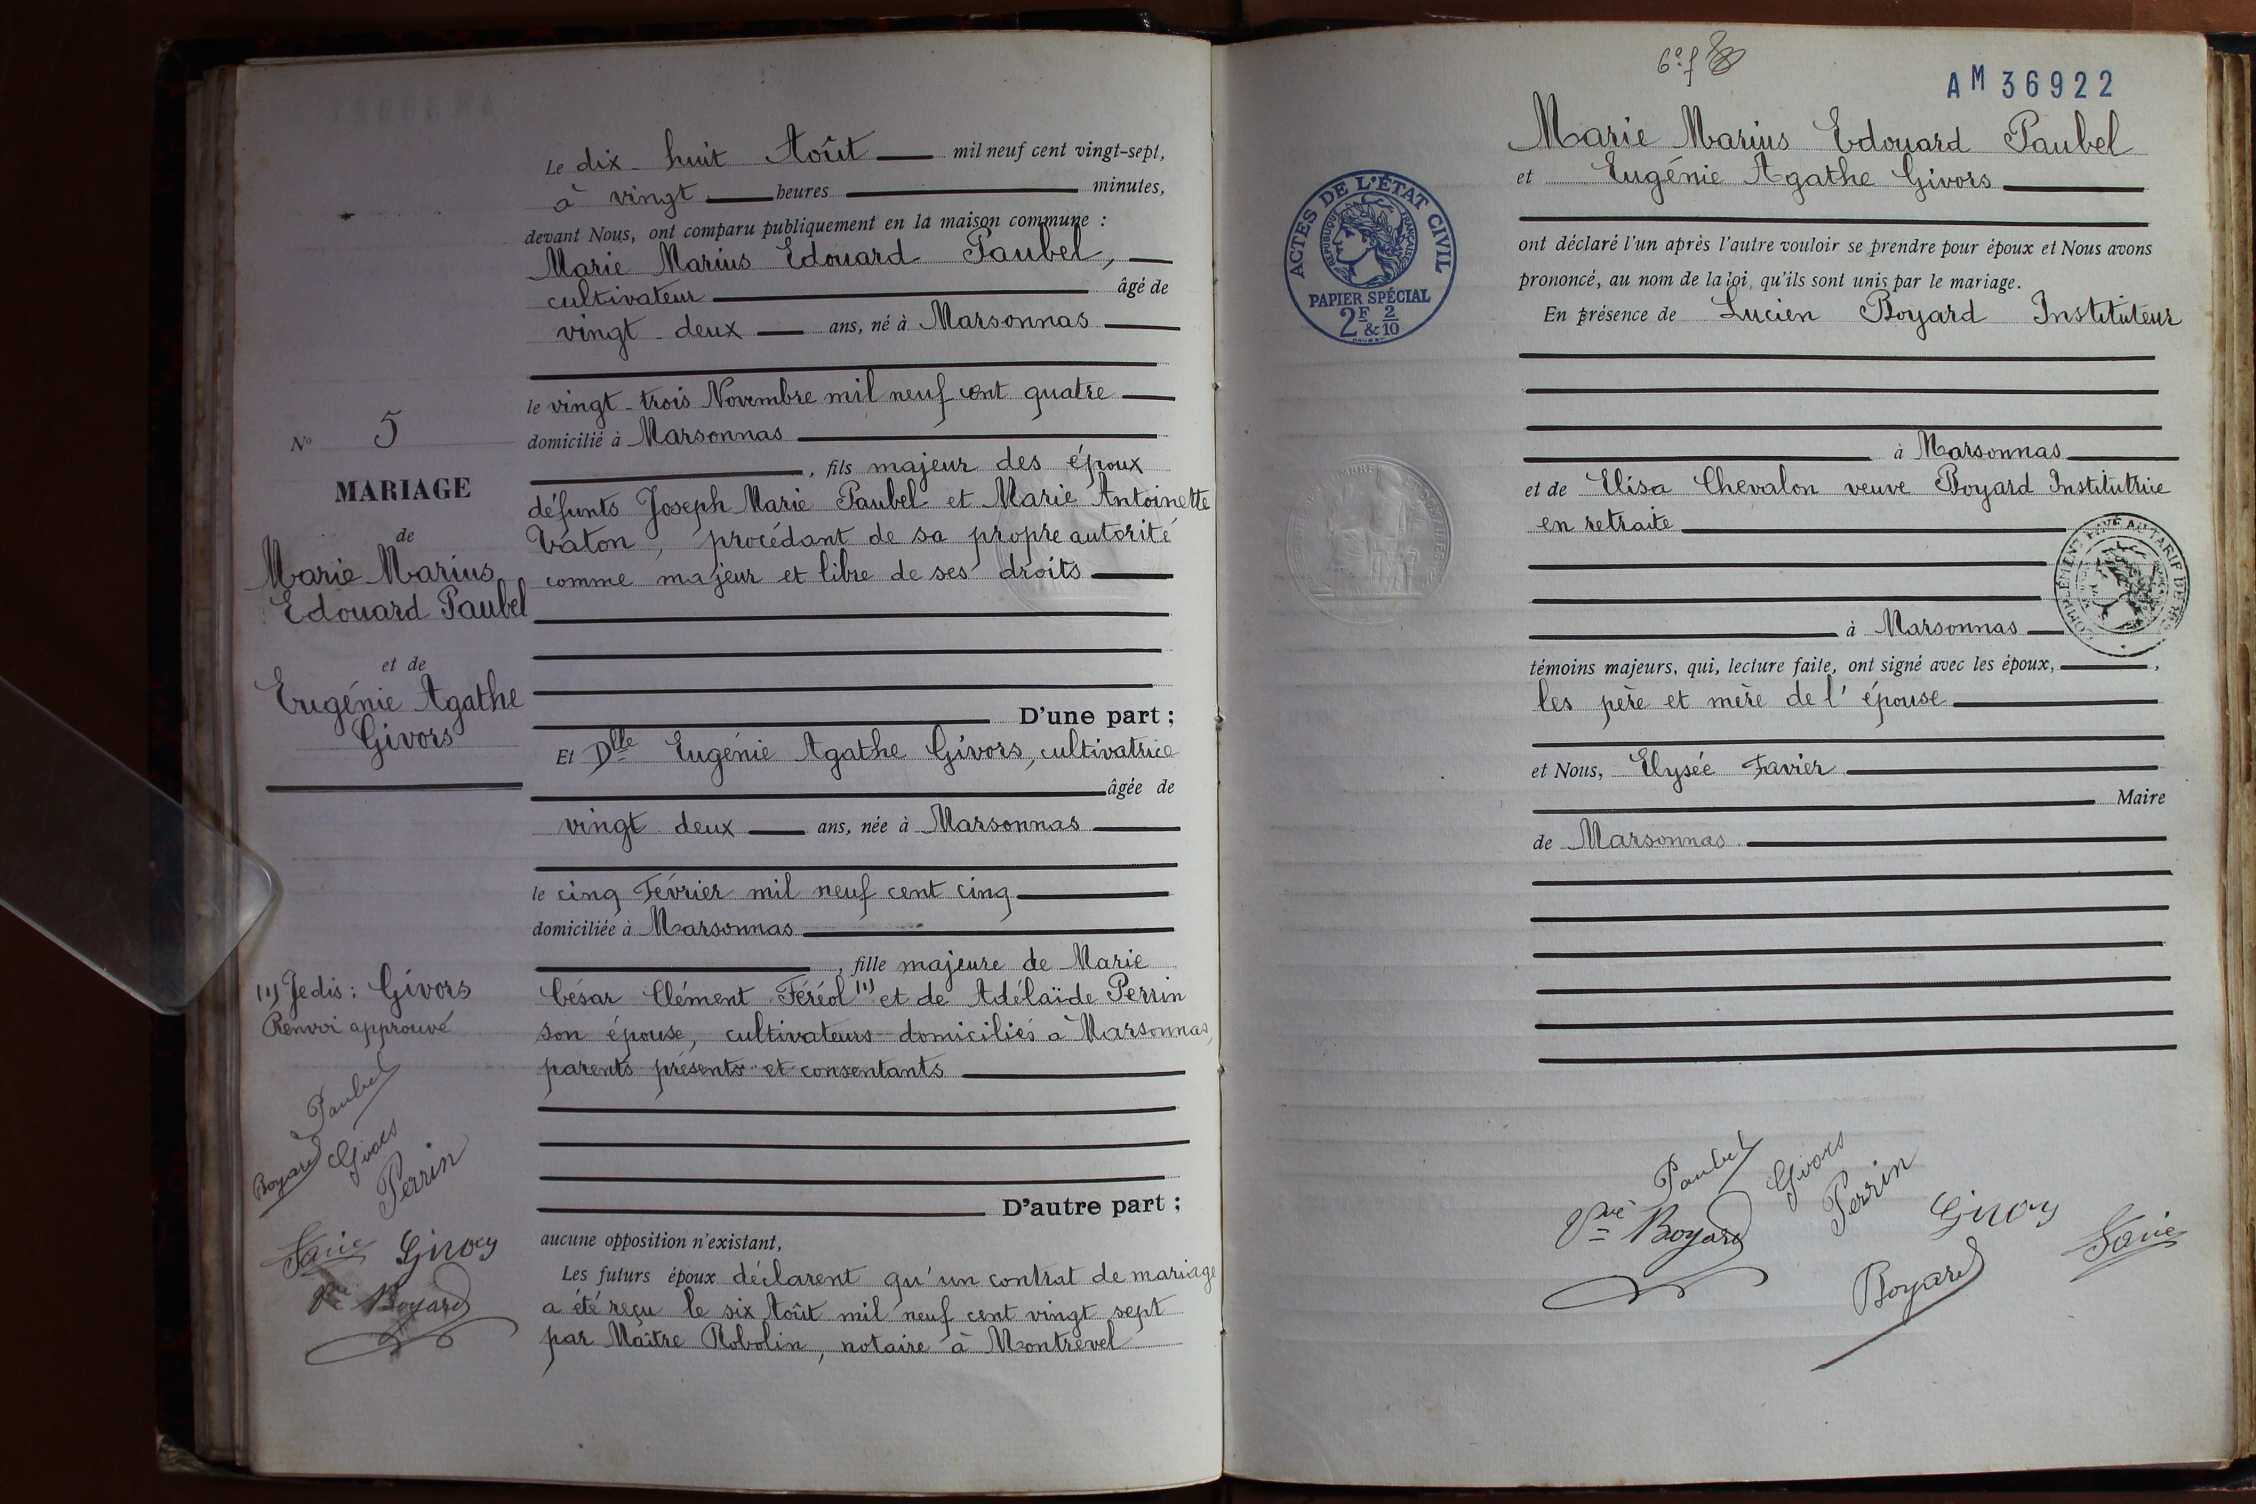 Le dix-huit Août mil neuf cent vingt-sept,
à vingt heures minutes,
devant Nous, ont comparu publiquement en la maison commune :
Marie Marius Edouard Paubel,
cultivateur âgé de
vingt-deux ans, né à Marsonnas
le vingt-trois Novembre mil neuf cent quatre
domicilié à Marsonnas
, fils majeur des époux
défunts Joseph Marie Paubel et Marie Antoinette
Vaton, procédant de sa propre autorité
comme majeur et libre de ses droits
D'une part ;
Et Dlle Eugénie Agathe Givors, cultivatrice
âgée de
vingt deux ans, née à Marsonnas
le cinq Février mil neuf cent cinq
domiciliée à Marsonnas
, fille majeure de Marie
César Clément Féréol (1) et de Adélaïde Perrin
son épouse, cultivateurs domiciliés à Marsonnas,
parents présents et consentants
D'autre part ;
aucune opposition n'existant,
Les futurs époux déclarent qu'un contrat de mariage
a été reçu le six Août mil neuf cent vingt sept
par Maître Robolin, notaire à Montrevel
No 5
MARIAGE
de
Marie Marius
Edouard Paubel
et de
Eugénie Agathe
Givors
(1) Je dis : Givors
Renvoi approuvé
Paubel
Boyard Givors
Perrin
Givors
Vve Boyard
6e f
AM 36922
Marie Marius Edouard Paubel
et Eugénie Agathe Givors
ont déclaré l'un après l'autre vouloir se prendre pour époux et Nous avons
prononcé, au nom de la loi, qu'ils sont unis par le mariage.
En présence de Lucien Boyard Instituteur
à Marsonnas
et de Elisa Chevalon veuve Boyard Institutrice
en retraite
à Marsonnas
témoins majeurs, qui, lecture faite, ont signé avec les époux, ,
les père et mère de l'épouse
et Nous, Elysée Favier
Maire
de Marsonnas
ACTES DE L'ÉTAT CIVIL
RÉPUBLIQUE FRANÇAISE
PAPIER SPÉCIAL
2F & 2/10
Paubel Givors
Perrin
Vve Boyard
Givors
Boyard
Favier